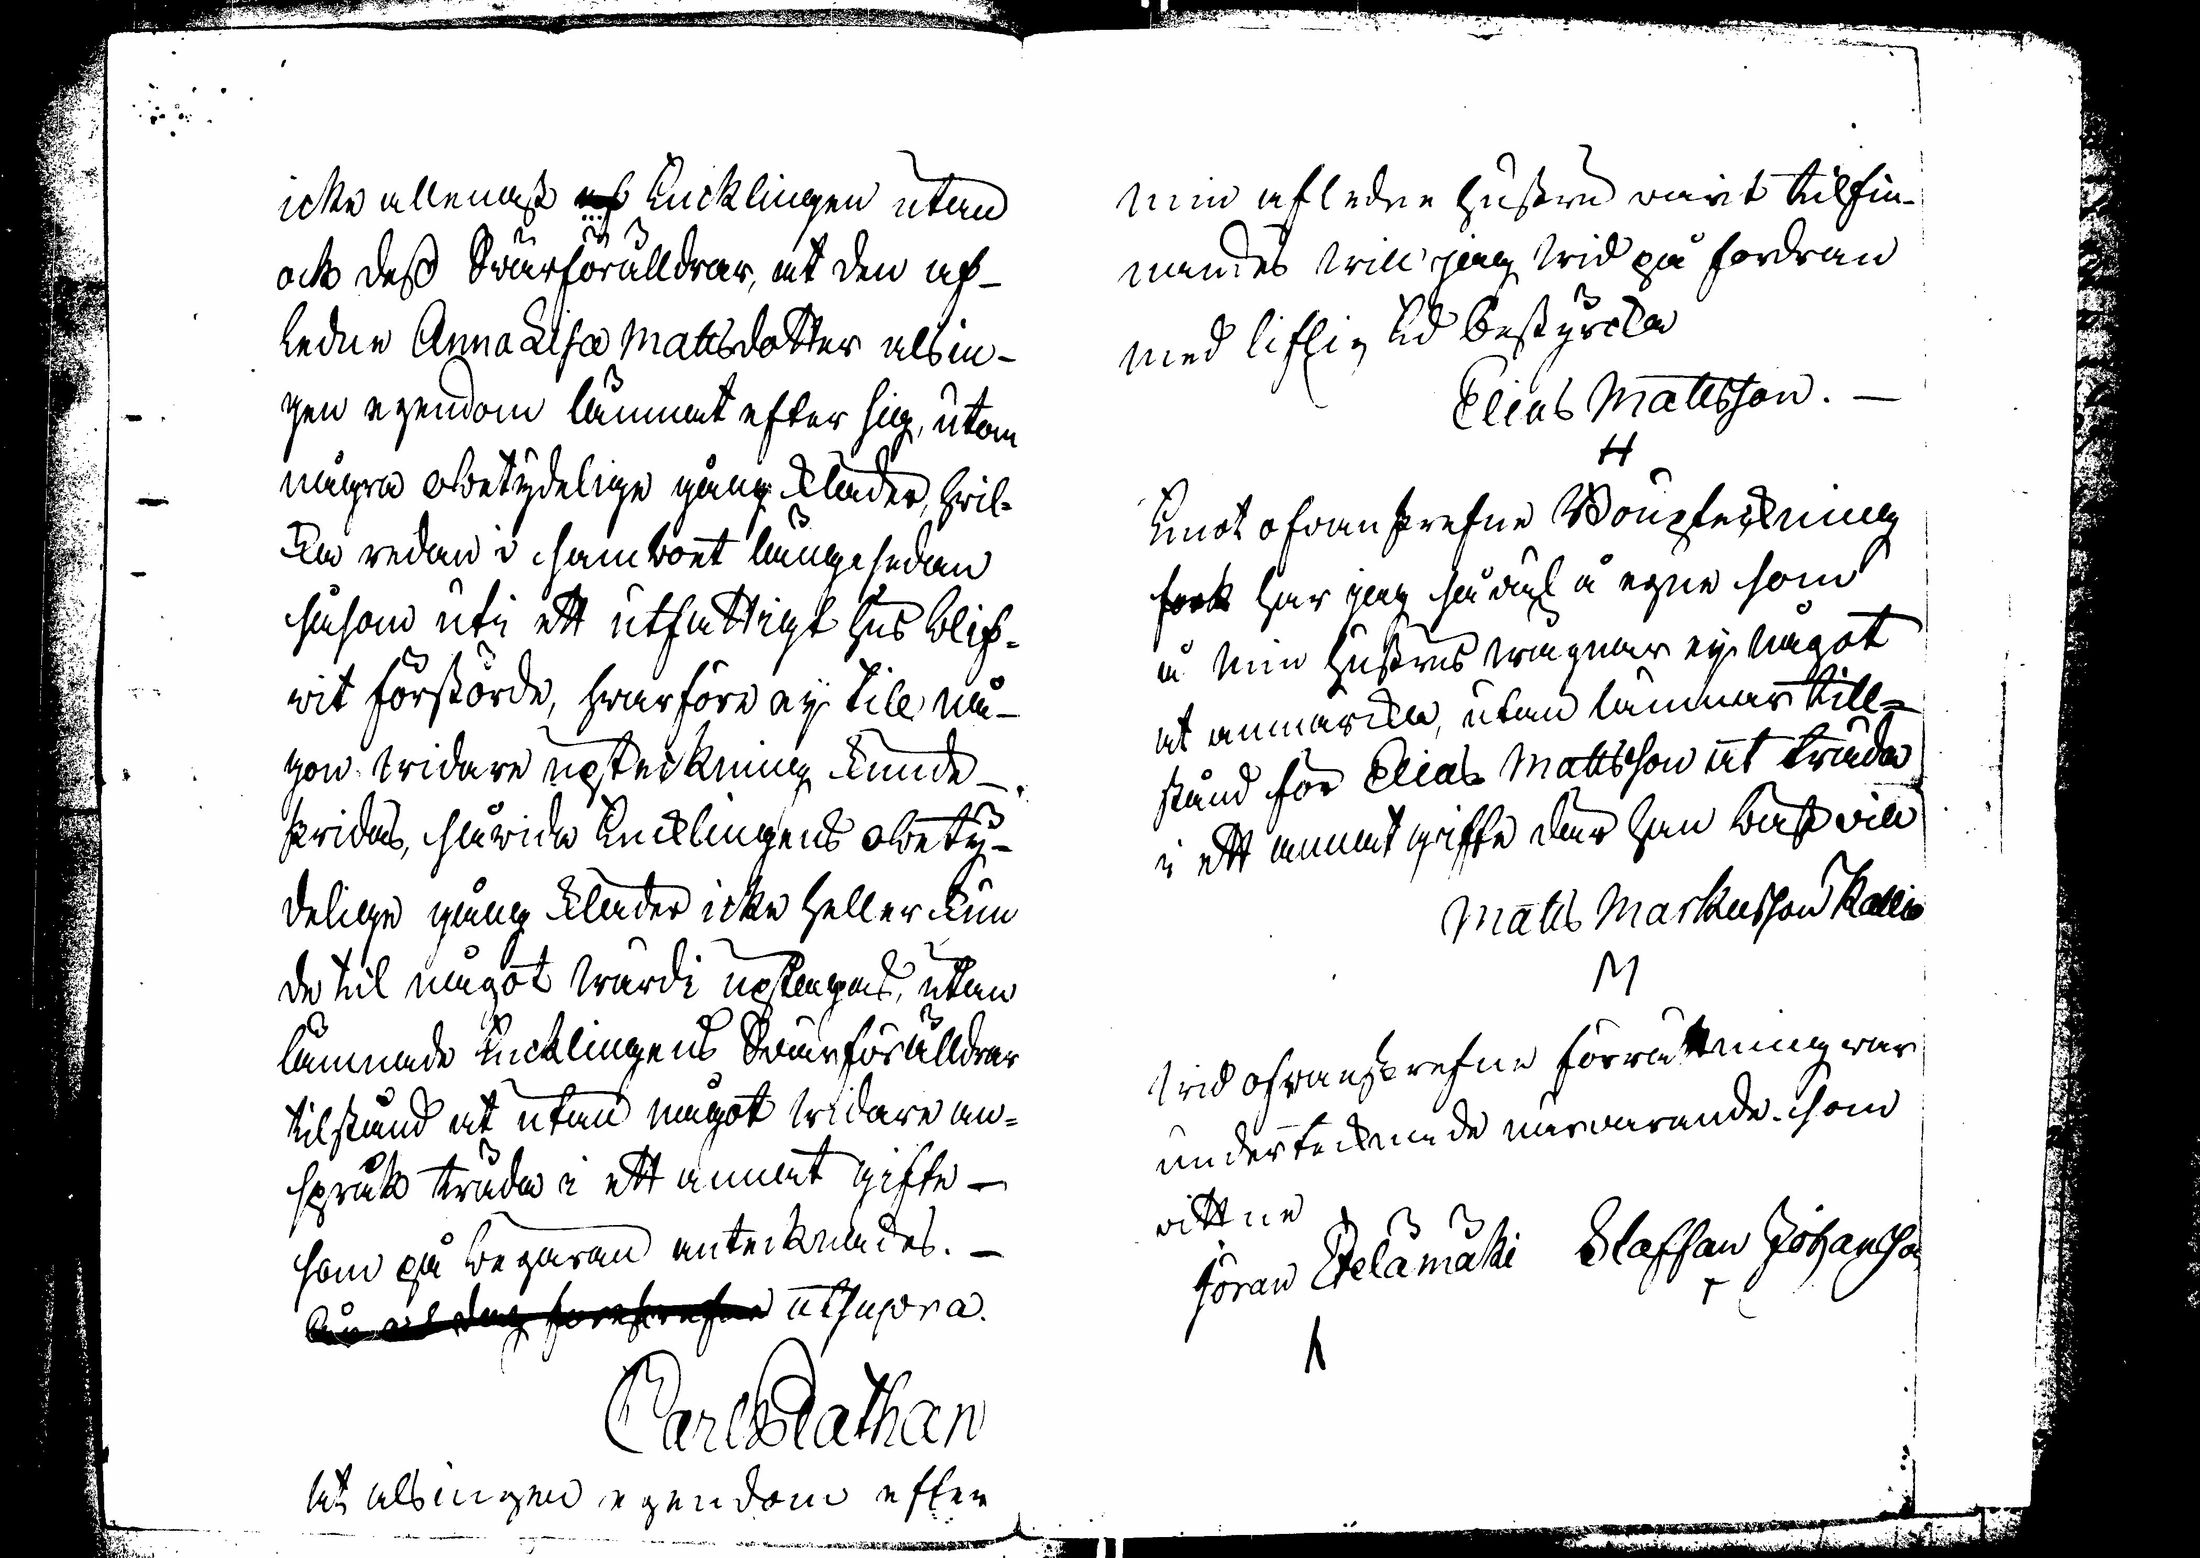 icke allenast af Encklingen utan
ock dess Svärföräldrar, at den af-
ledne Anna Lisa Mattsdotter alsin-
gen egendom lämnat efter sig, utom
några obetydelige gång kläder, hvil-
ka redan i samboet längesedan
såsom uti ett utfattigt hus blif-
vit förstörde, hvarföre ej till nå-
gon vidare upteckning kunde
skridas, såvida Encklingens obety-
delige gång kläder icke heller kun
de til något värde uptagas, utan
lämnade Encklingens Svärföräldrar
tilstånd at utan något vidare an-
språk träda i ett annat gifte -
som på begäran antecknades. -
År och dag föreskrefne ut supra.
Carl Nathan
At alsingen egendom efter
min afledne hustru varit tilfin-
nandes vill jag vid påfordran
med liflig Ed bestyrcka
Elias Mattsson. -
H
Emot ofvanskrefne Bouptekning
har jag såväl å egne som
å min hustrus vägnar ej något
at anmärcka, utan lämnar till-
stånd för Elias Mattsson at träda
i ett annat gifte där han bäst vill
Matts Markusson Kallio
M
Vid ofvanskrefne förrättning var
undertecknade närvarande som
vittne
Jöran Etelämäki Staffan Johansson